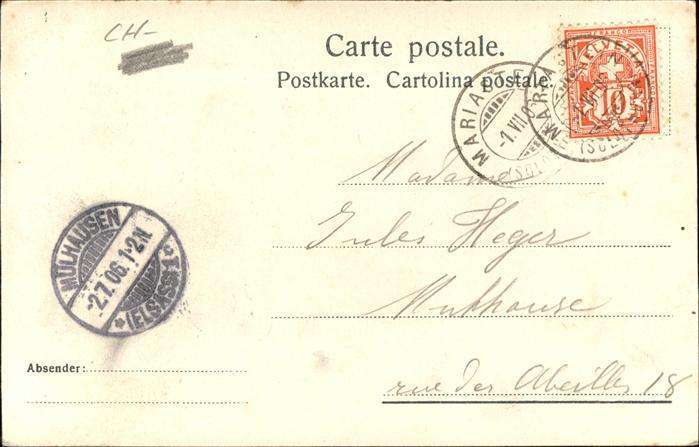 CH-
Carte postale.
Postkarte. Cartolina postale.
HELVETIA
10
MARIASTEIN
-1.VII.0
(SOLOTH
MÜLHAUSEN
-2.7.06.1-2N
*(ELSASS)*1
Madame
Jules Heger
Mulhouse
Absender:
rue des Abeilles 18